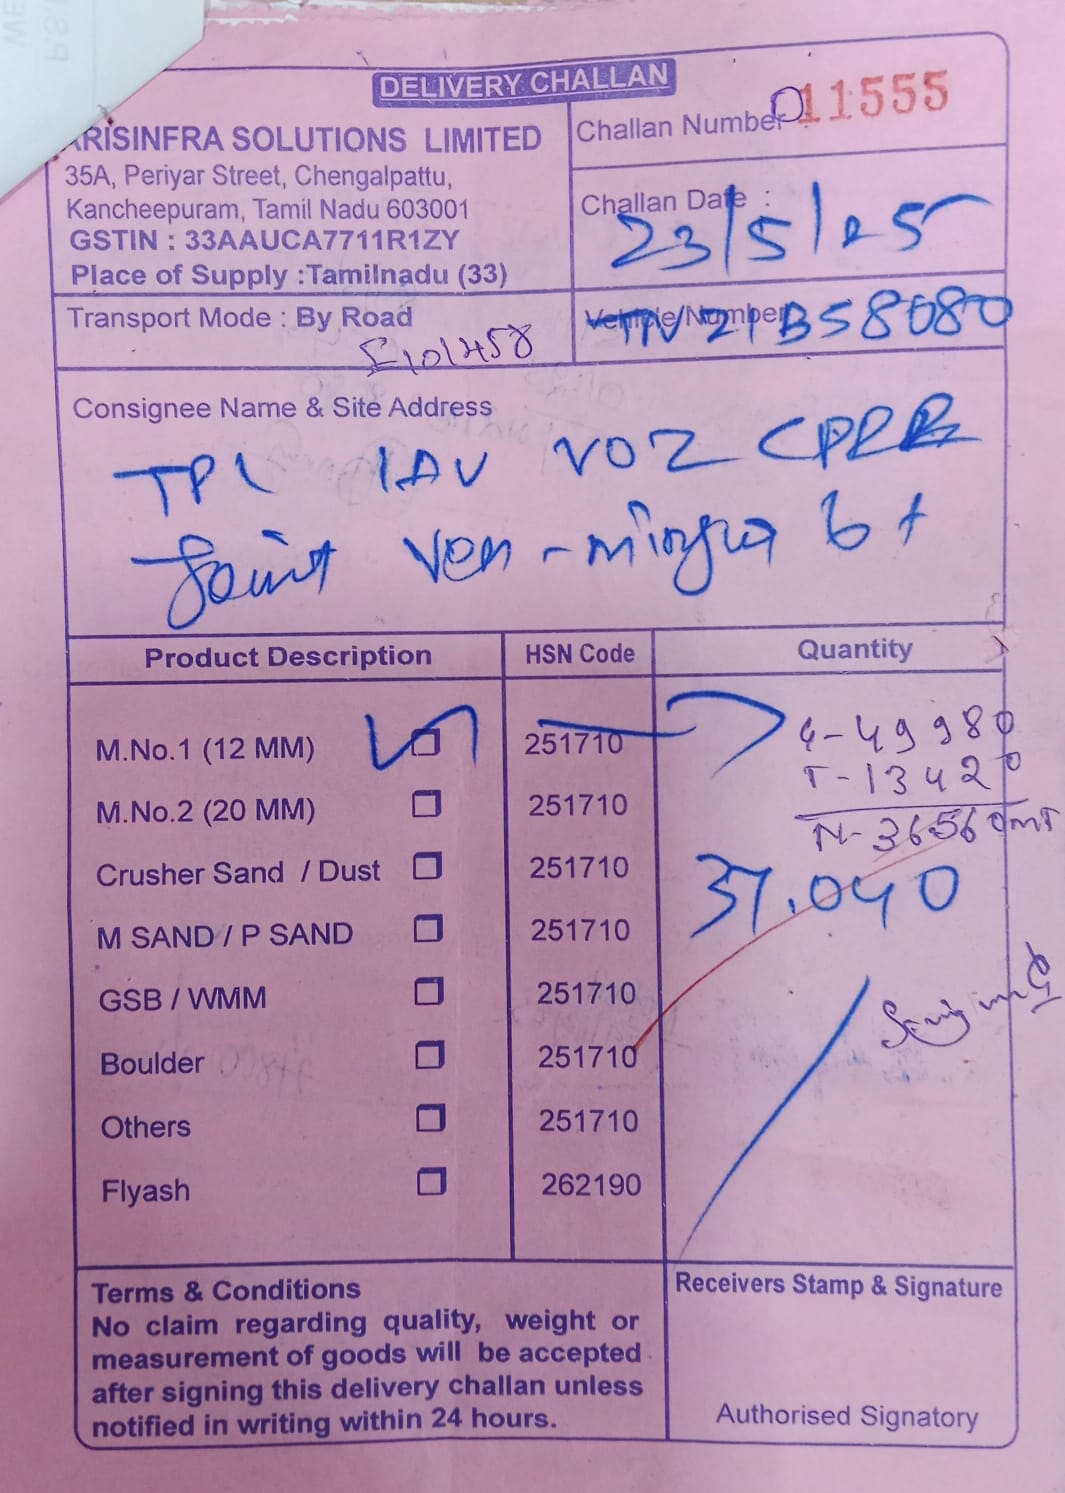 DELIVERY CHALLAN
ARISINFRA SOLUTIONS LIMITED
35A, Periyar Street, Chengalpattu,
Kancheepuram, Tamil Nadu 603001
GSTIN : 33AAUCA7711R1ZY
Place of Supply :Tamilnadu (33)
Challan Number 011555
Challan Date :
23/5/25
Transport Mode : By Road
Vehicle Number TN 21 BS 8080
Consignee Name & Site Address
TPL JAV VOZ CPRR
Joint Ven
Product Description HSN Code Quantity
M.No.1 (12 MM) 251710
M.No.2 (20 MM) 251710
Crusher Sand / Dust 251710
M SAND / P SAND 251710
GSB / WMM 251710
Boulder 251710
Others 251710
Flyash 262190
G-49980
T-13420
N-36560 MT
37.040
Terms & Conditions
No claim regarding quality, weight or
measurement of goods will be accepted
after signing this delivery challan unless
notified in writing within 24 hours.
Receivers Stamp & Signature
Authorised Signatory